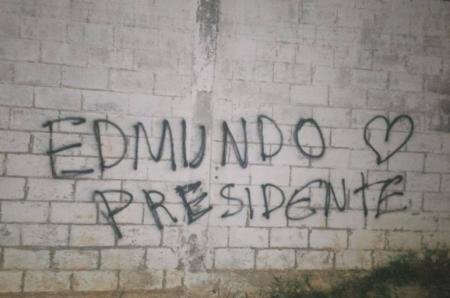 EDMUNDO ♡
PRESIDENTE